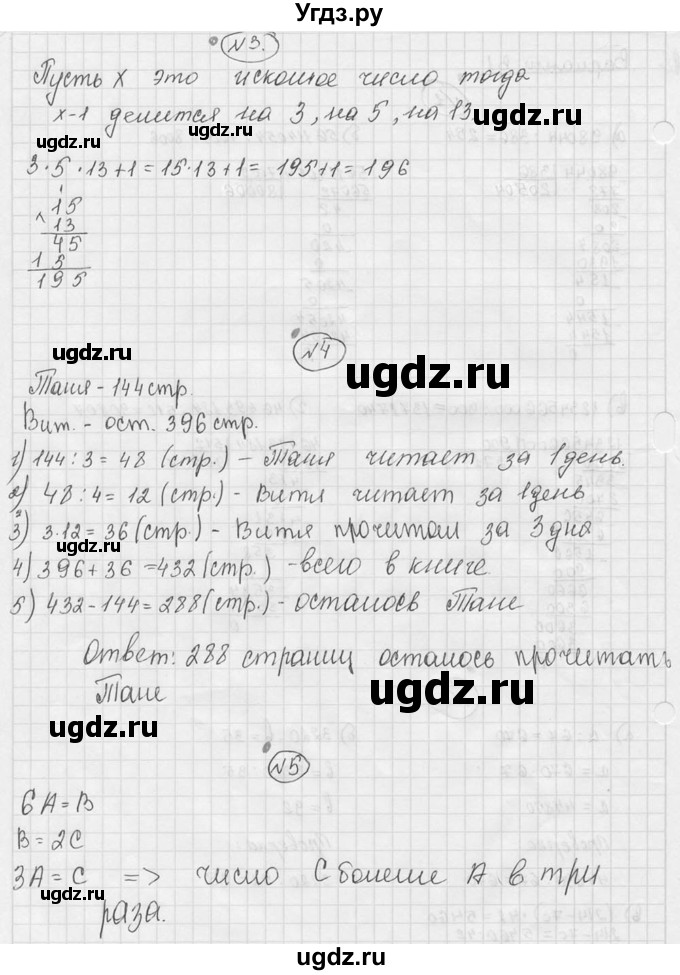 Угдз.ру
№3.
Пусть X это искомое число тогда
x-1 делится на 3, на 5, на 13
3·5·13+1=15·13+1=195+1=196
15
× 13
45
15
195
ugdz.ru
№4
ugdz.ru
ugdz.ru
Таня - 144 стр.
Вит. - ост. 396 стр.
1) 144:3=48 (стр.) - Таня читает за 1 день.
2) 48:4=12 (стр.) - Витя читает за 1 день
3) 3·12=36 (стр.) - Витя прочитал за 3 дня
4) 396+36=432 (стр.) - всего в книге
5) 432-144=288 (стр.) - осталось Тане
Ответ: 288 страниц осталось прочитать
Тане
ugdz.ru
ugdz.ru
ugdz.ru
№5
6A=B
B=2C
3A=C => число C больше A в три
раза.
ugdz.ru
ugdz.ru
Угдз.ру